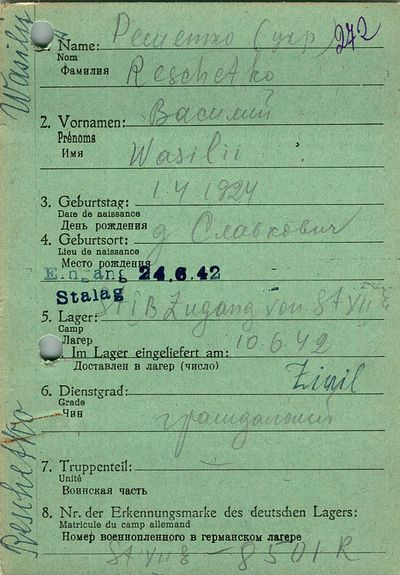 Wasilii
1. Name: Решетко (укр) 272
Nom
Фамилия Reschetko
2. Vornamen: Василий
Prénoms
Имя Wasilii
3. Geburtstag: 1 4 1924
Date de naissance
День рождения
4. Geburtsort: д Славкович
Lieu de naissance
Место рождения
Eingang 24.6.42
Stalag
5. Lager: Zugang von St VII E
Camp
Лагер
6. Im Lager eingeliefert am: 10.6.42
Доставлен в лагер (число)
6. Dienstgrad: Zivil
Grade
Чин гражданский
7. Truppenteil: —
Unité
Воинская часть
8. Nr. der Erkennungsmarke des deutschen Lagers:
Matricule du camp allemand
Номер военнопленного в германском лагере
8501 R
Reschetko